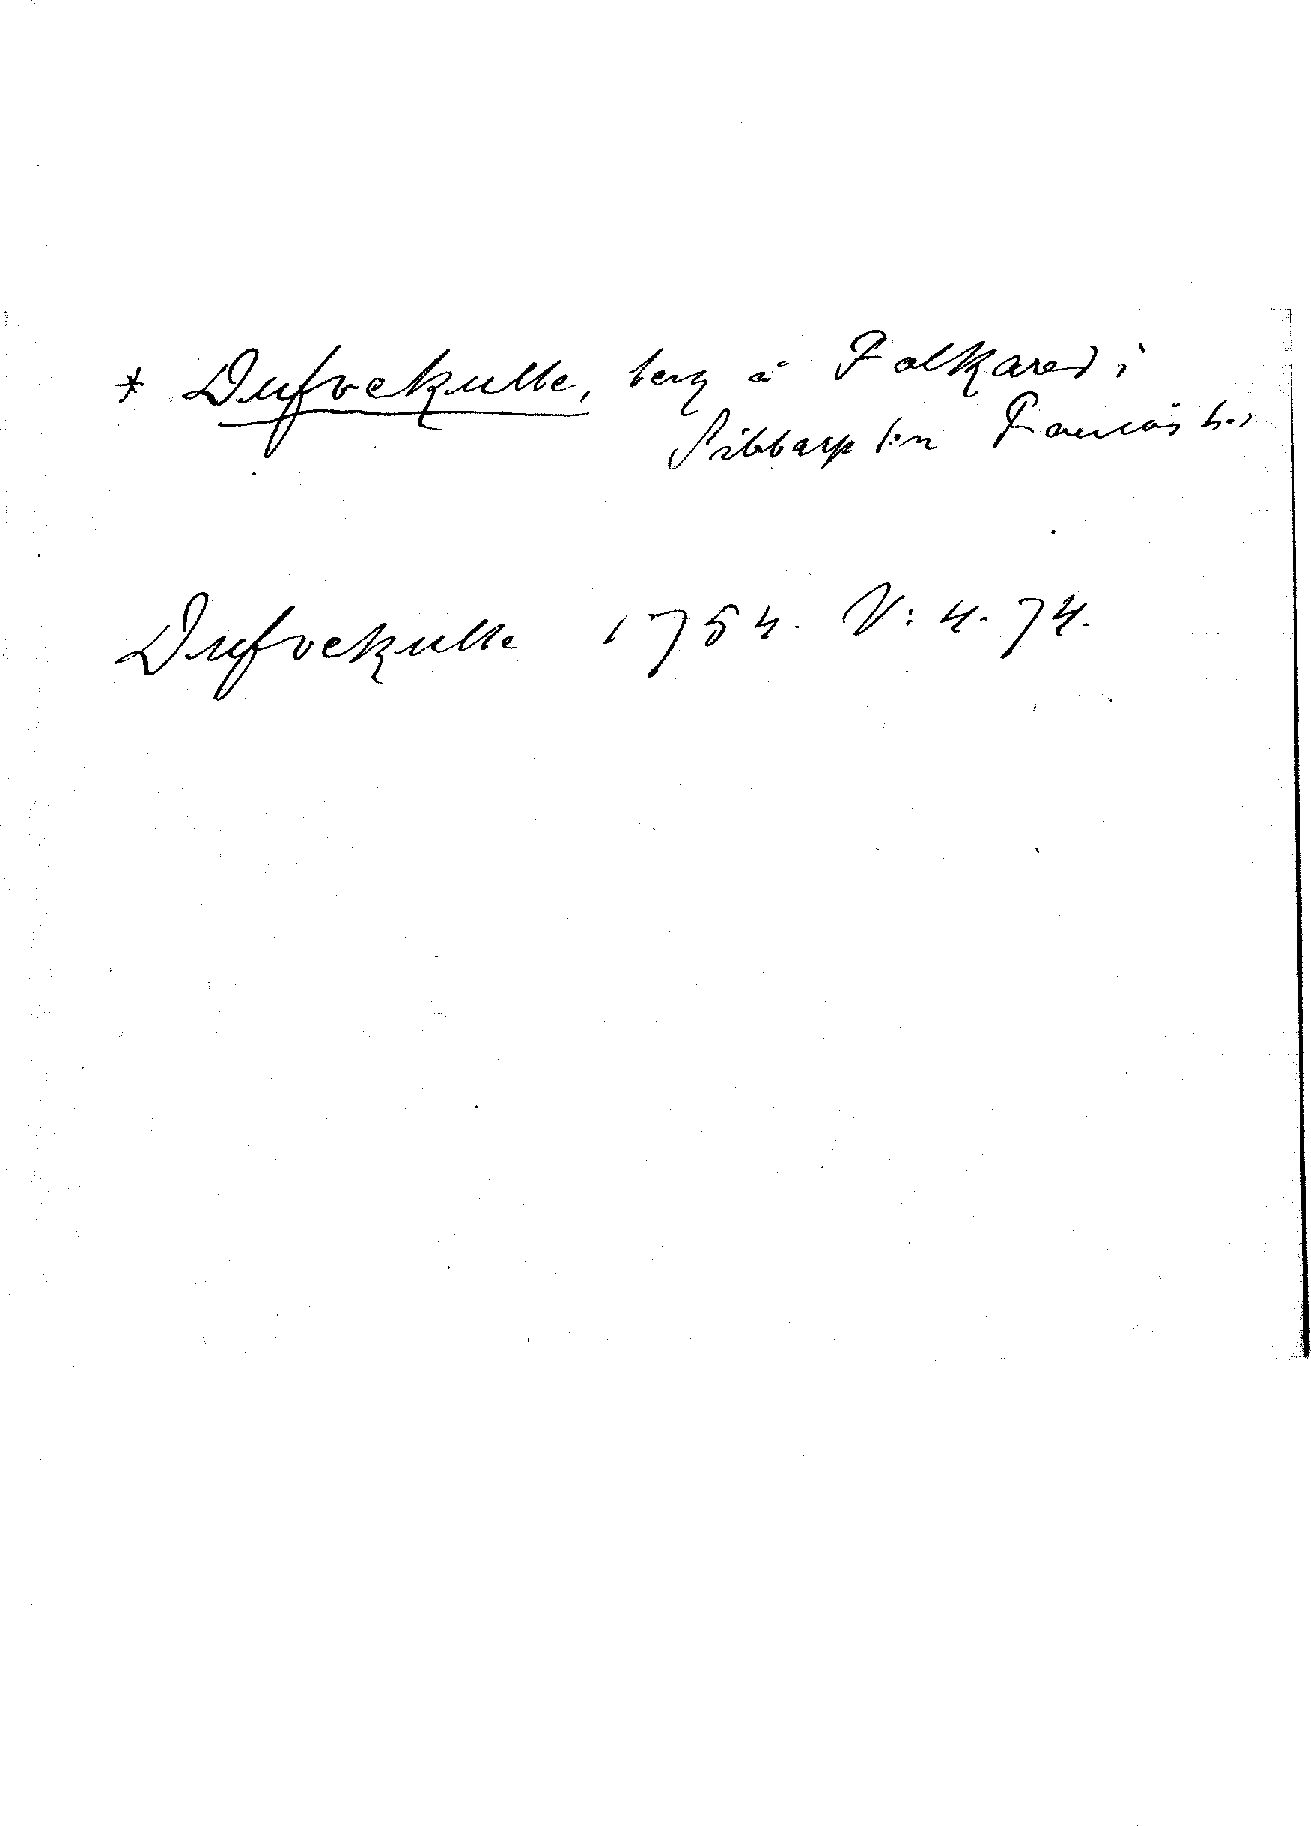 * Dufvekulle, berg å Folkared i
Sibbarp sn Faurås hd
Dufvekulle 1754. V: 4. 74.